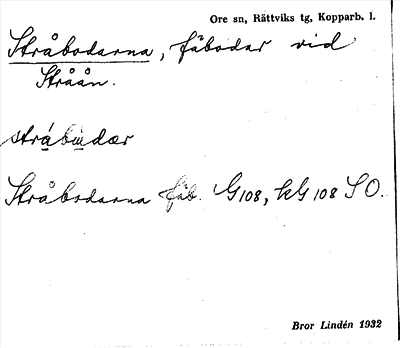 Ore sn, Rättviks tg, Kopparb. l.
Stråbodarna, fäbodar vid
Stråån.
Stråbodarna fäb. G108, kG 108 SO.
Bror Lindén 1932